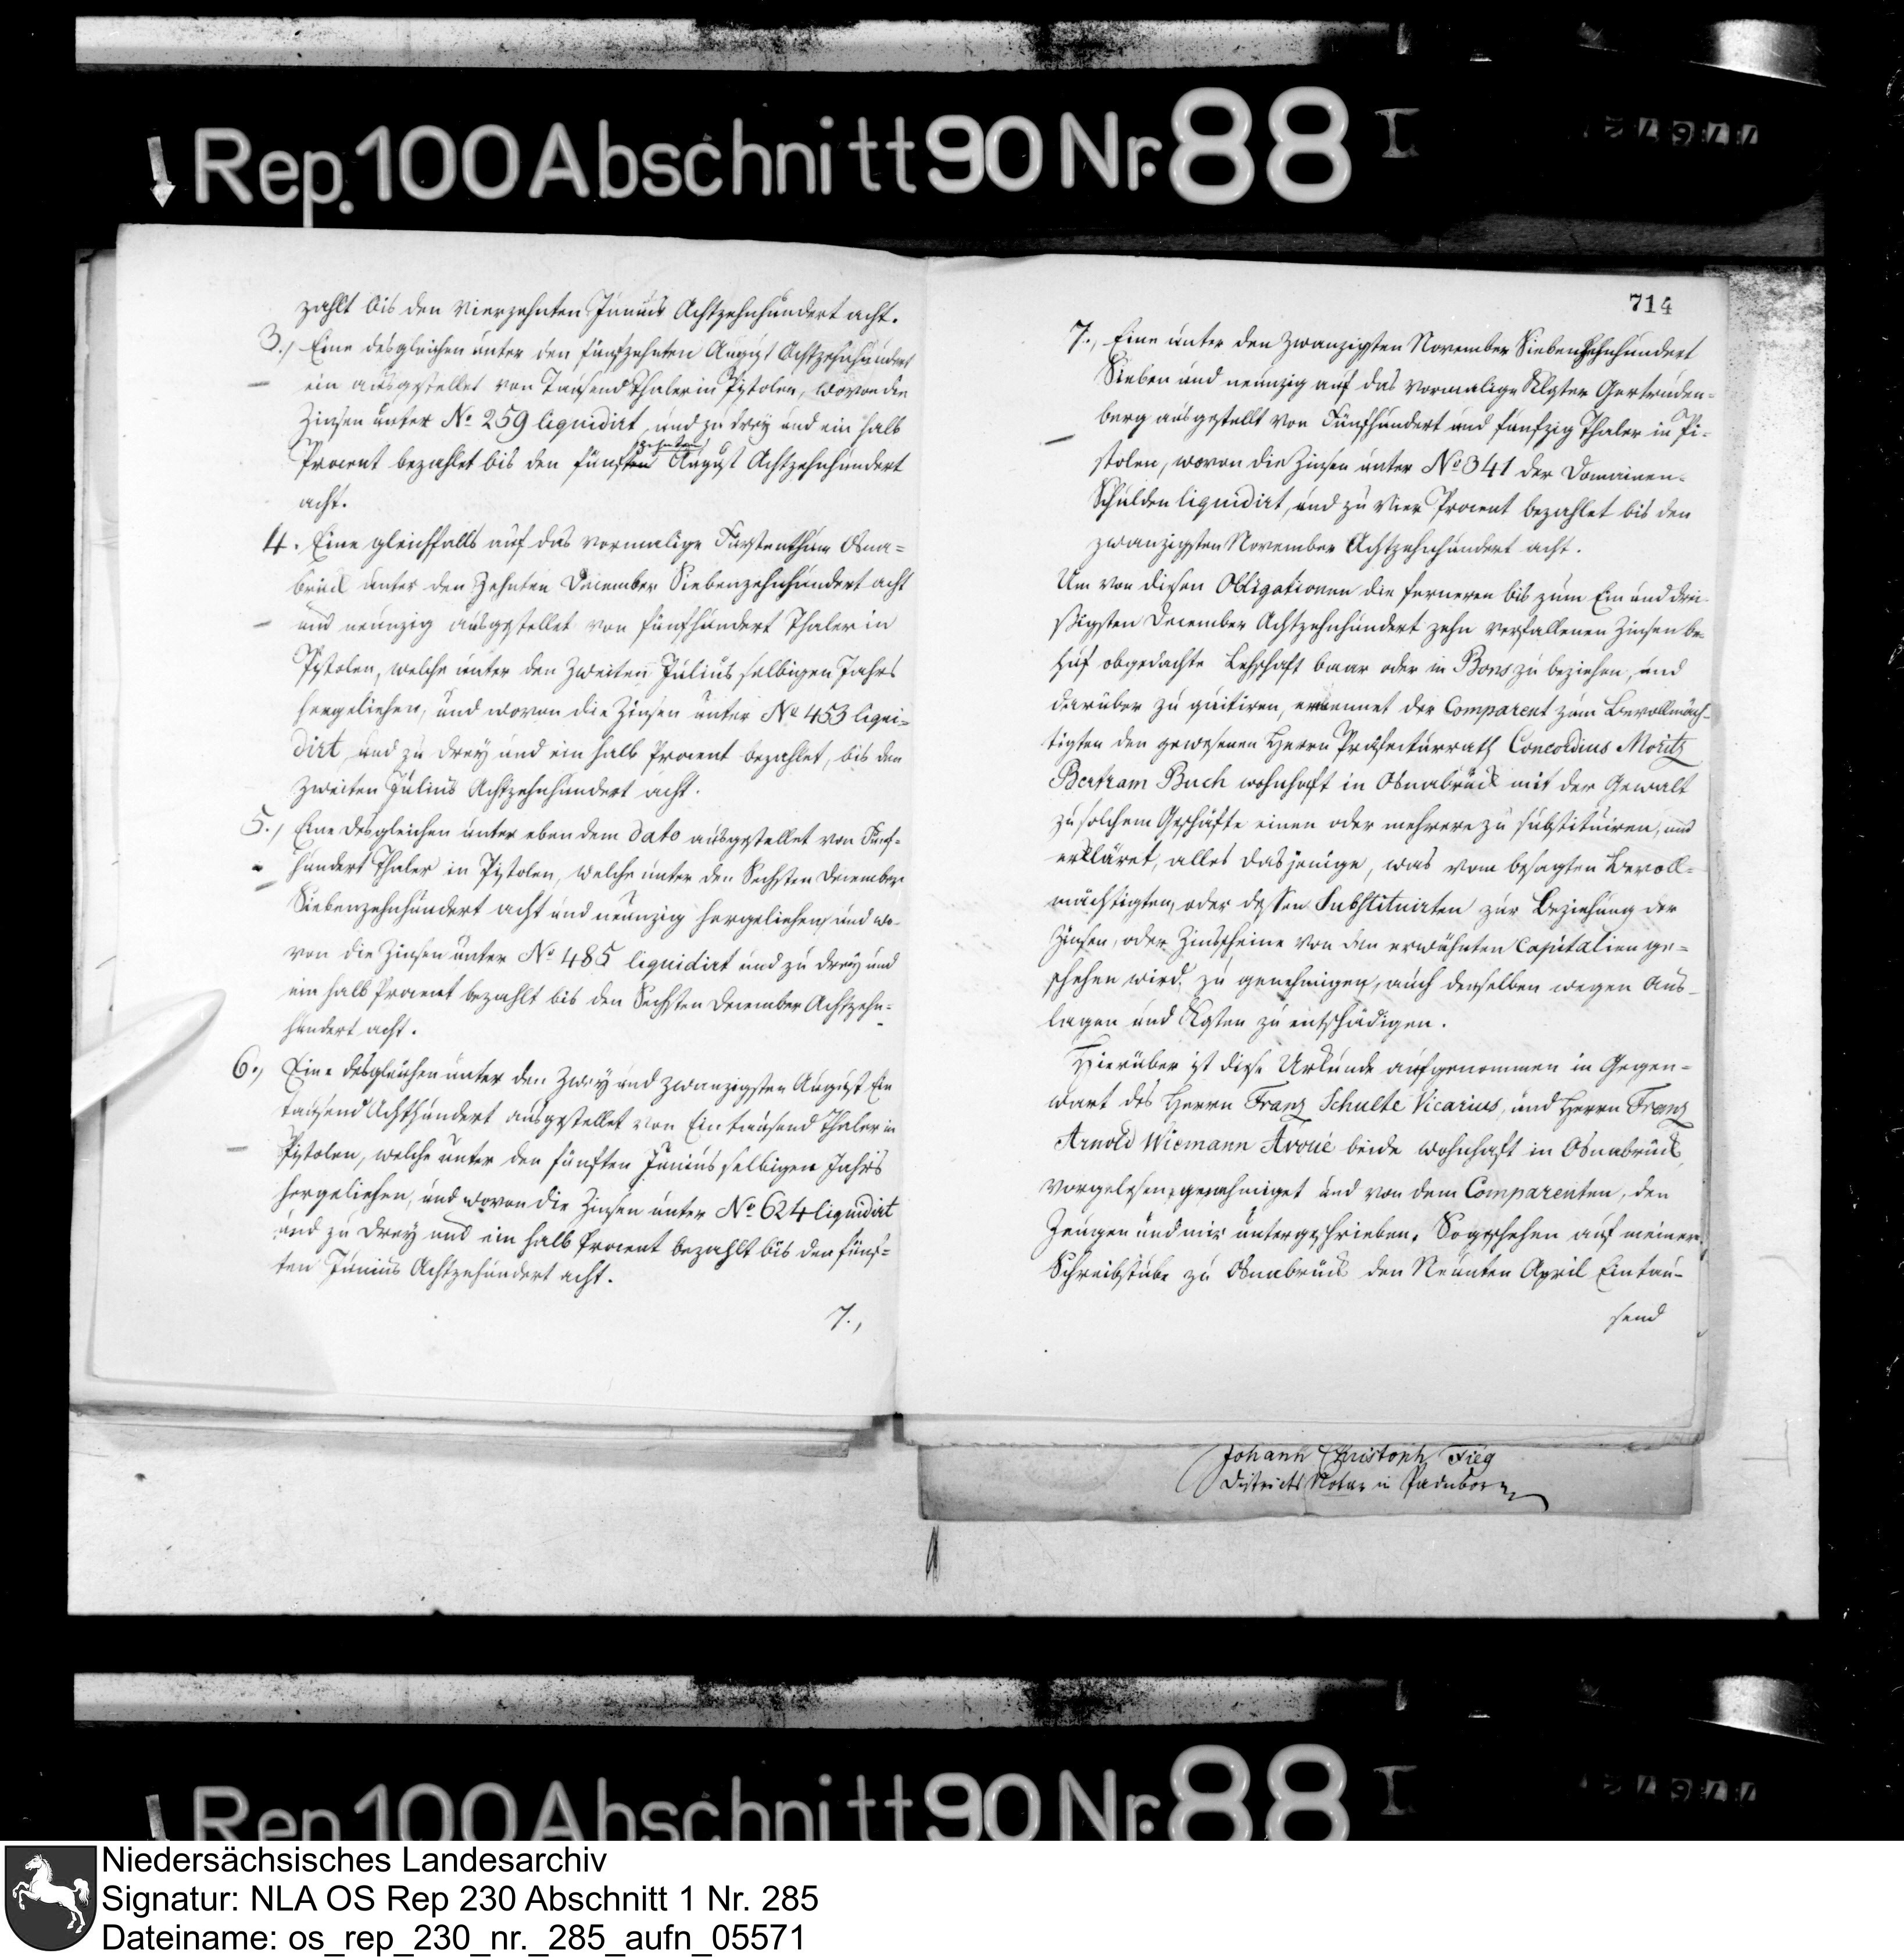 Rep. 100 Abschnitt 90 Nr. 88 I
zahlt bis den Vierzehnten Junius Achtzehnhundert acht.
3., Eine desgleichen unter den fünfzehnten August Achtzehnhundert
ein ausgestellet von Tausend Thaler in Pistolen, wovon die
Zinsen unter No 259 liquidirt, und zu drey und ein halb
Procent bezahlet bis den fünfzehnten August Achtzehnhundert
acht.
4. Eine gleichfalls auf das vormalige Fürstenthum Osna=
brück unter den Zehnten December Siebenzehnhundert acht
und neunzig ausgestellet von fünfhundert Thaler in
Pistolen, welche unter den Zweiten Julius selbigen Jahrs
hergeliehen, und wovon die Zinsen unter No 453 liqui=
dirt und zu drey und ein halb Procent bezahlet, bis den
Zweiten Julius Achtzehnhundert acht.
5., Eine desgleichen unter eben dem dato ausgestellet von Fünf=
hundert Thaler in Pistolen, welche unter den Sechsten December
Siebenzehnhundert acht und neunzig hergeliehen und wo=
von die Zinsen unter No 485 liquidirt und zu drey und
ein halb Procent bezahlt bis den Sechsten December Achtzehn=
hundert acht.
6., Eine desgleichen unter den Zwey und zwanzigsten August Ein
tausend Achthundert ausgestellet von Ein tausend Thaler in
Pistolen, welche unter den fünften Junius selbigen Jahrs
hergeliehen, und wovon die Zinsen unter No 624 liquidirt
und zu drey und ein halb Procent bezahlt bis den fünf=
ten Junius Achtzehnhundert acht.
7.,
714
7., Eine unter den zwanzigsten November Siebenzehnhundert
Sieben und neunzig auf das vormalige Kloster Gertruden=
berg ausgestellt von Fünfhundert und fünfzig Thaler in Pi=
stolen, wovon die Zinsen unter No 341 der Domainen=
Schulden liquidirt, und zu Vier Procent bezahlet bis den
zwanzigsten November Achtzehnhundert acht.
Um von diesen Obligationen die ferneren bis zum Ein und drei=
ßigsten December Achtzehnhundert zehn verfallenen Zinsen be=
huf obgedachte baar oder in Bons zu beziehen, und
darüber zu quitiren, ernennet der Comparent zum Bevollmäch=
tigten den gewesenen Herrn Präfecturrath Concordius Moritz
Bertram Buch wohnhaft in Osnabrück mit der Gewalt
zu solchem Geschäfte einen oder mehrere zu substituiren, und
erkläret, alles dasjenige, was vom besagten Bevoll=
mächtigten, oder dessen Substituirten zur Beziehung der
Zinsen, oder Zinsscheine von den erwähnten Capitalien ge=
schehen wird, zu genehmigen, auch denselben wegen Aus=
lagen und Kosten zu entschädigen.
Hierüber ist diese Urkunde aufgenommen in Gegen=
wart des Herrn Franz Schulte Vicarius, und Herrn Franz
Arnold Wiemann Avoué beide wohnhaft in Osnabrück,
vorgelesen, genehmiget und von dem Comparenten, den
Zeugen und mir unterschrieben. So geschehen auf meiner
Schreibstube zu Osnabrück den Neunten April Eintau=
send
Johann Christoph Fieg
Districts Notar in Paderborn
Rep 100 Abschnitt 90 Nr. 88 I
Niedersächsisches Landesarchiv
Signatur: NLA OS Rep 230 Abschnitt 1 Nr. 285
Dateiname: os_rep_230_nr._285_aufn_05571